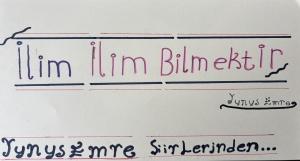 İlim İlim Bilmektir
Yunus Emre
Yunus Emre Şiirlerinden...